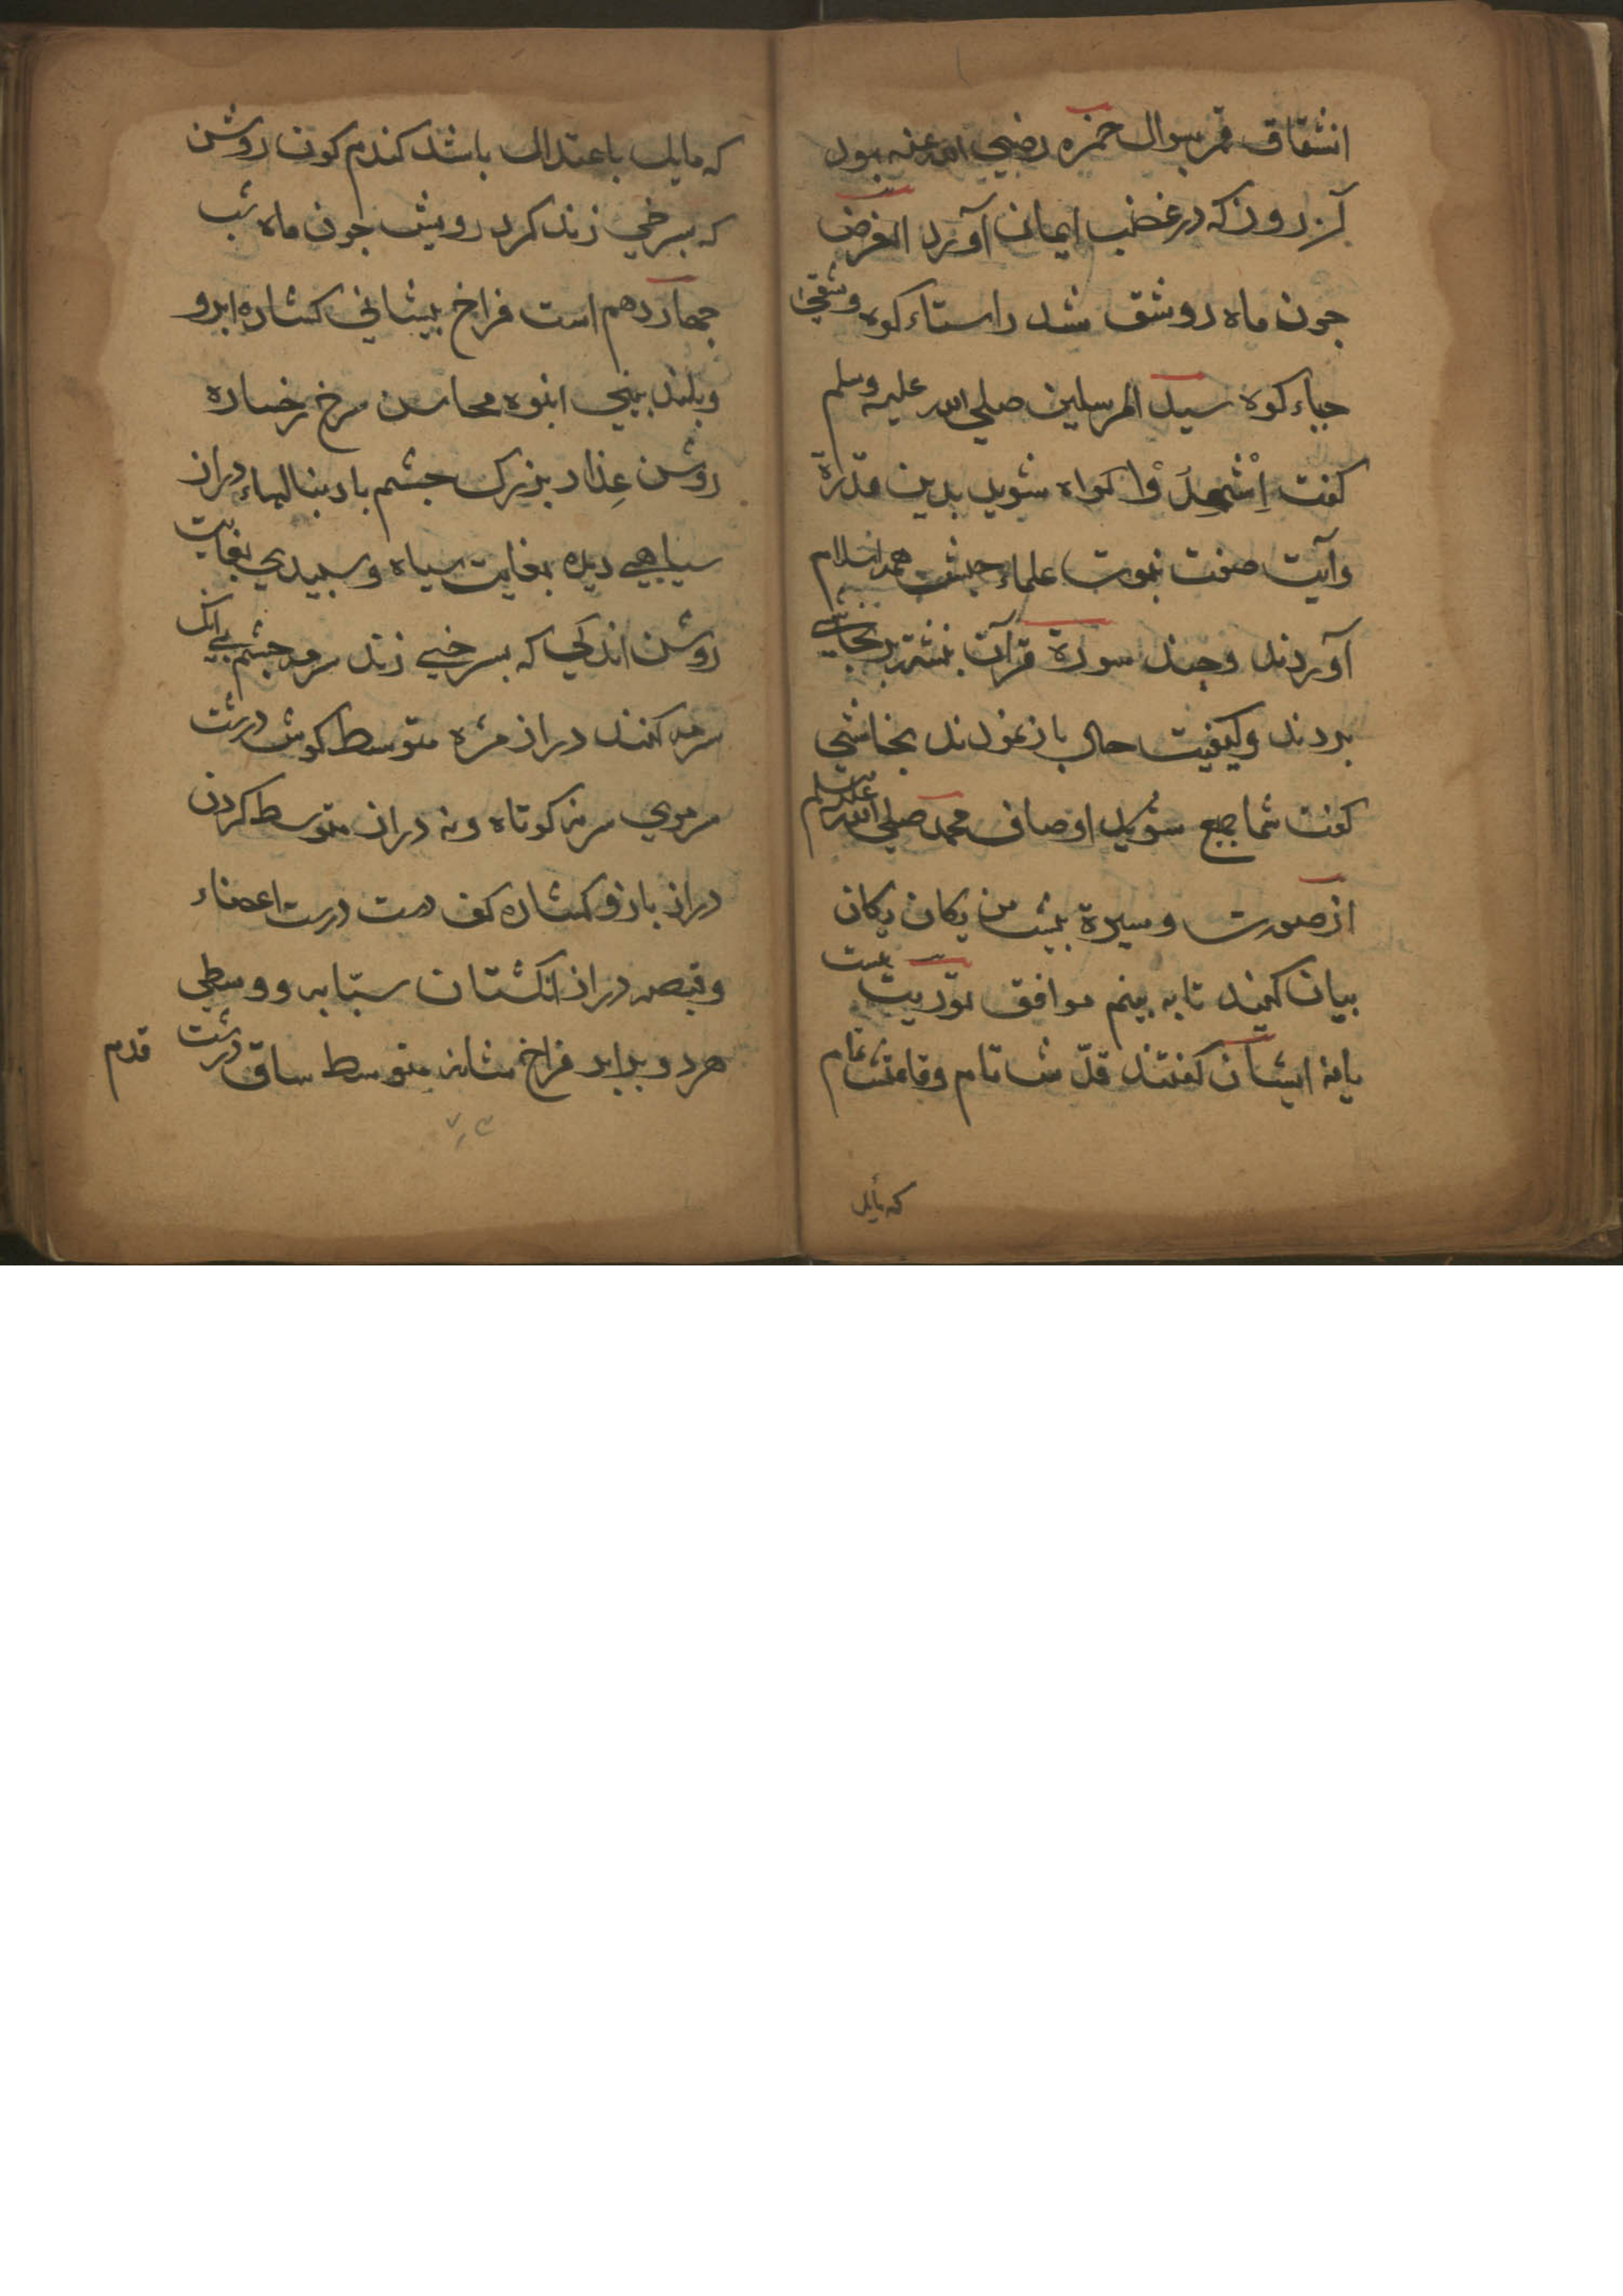 انشقاق قمر بسوال حمزه رضي الله عنه بود
كه در غضب ايمان آورد الغرض
جون ماه دو شق شد راستاء كوه وشقي
جباء كوه سيد المرسلين صلي الله عليه وسلم
كفت اِشْهِدُوْا كواه شويد بدين قدرة
وآيت صفت نبوت علماء حبشه همه اسلام
آوردند وجند سورة قرآن بنشتند بنجاشي
بردند وكيفيت حال باز نمودند نجاشي
كفت شما جمع شويد اوصاف محمد صلي الله عليه وسلم
از صورت وسيرة بيش من يكان يكان
بيان كنيد تا به بينم موافق توريت هست
يا نه ايشان كفتند قدّش تام وقامتش تمام
كه مايل
كه مايل باعتدال باشد كندم كون روشن
كه بسرخي زند كرد رويش جون ماه شب
جهاردهم است فراخ بيشاني كشاده ابرو
وبلند بيني انبوه محاسن سرخ رخساره
روشن عِذار بزرك جشم با دنبالهاء دراز
سياهي ديده بغايت سياه وسبيدي بغايت
روشن اندكي كه بسرخي زند سرمه جشم بي آنك
سرمه كنند دراز مژه متوسط كوش درشت
سر موي سر نه كوتاه ونه دراز متوسط كردن
دراز بازو كشاده كف دست درست اعضاء
وقبصه دراز انكشتان سبّابه ووسطي
هر دو برابر فراخ شانه متوسط ساق درشت
قدم